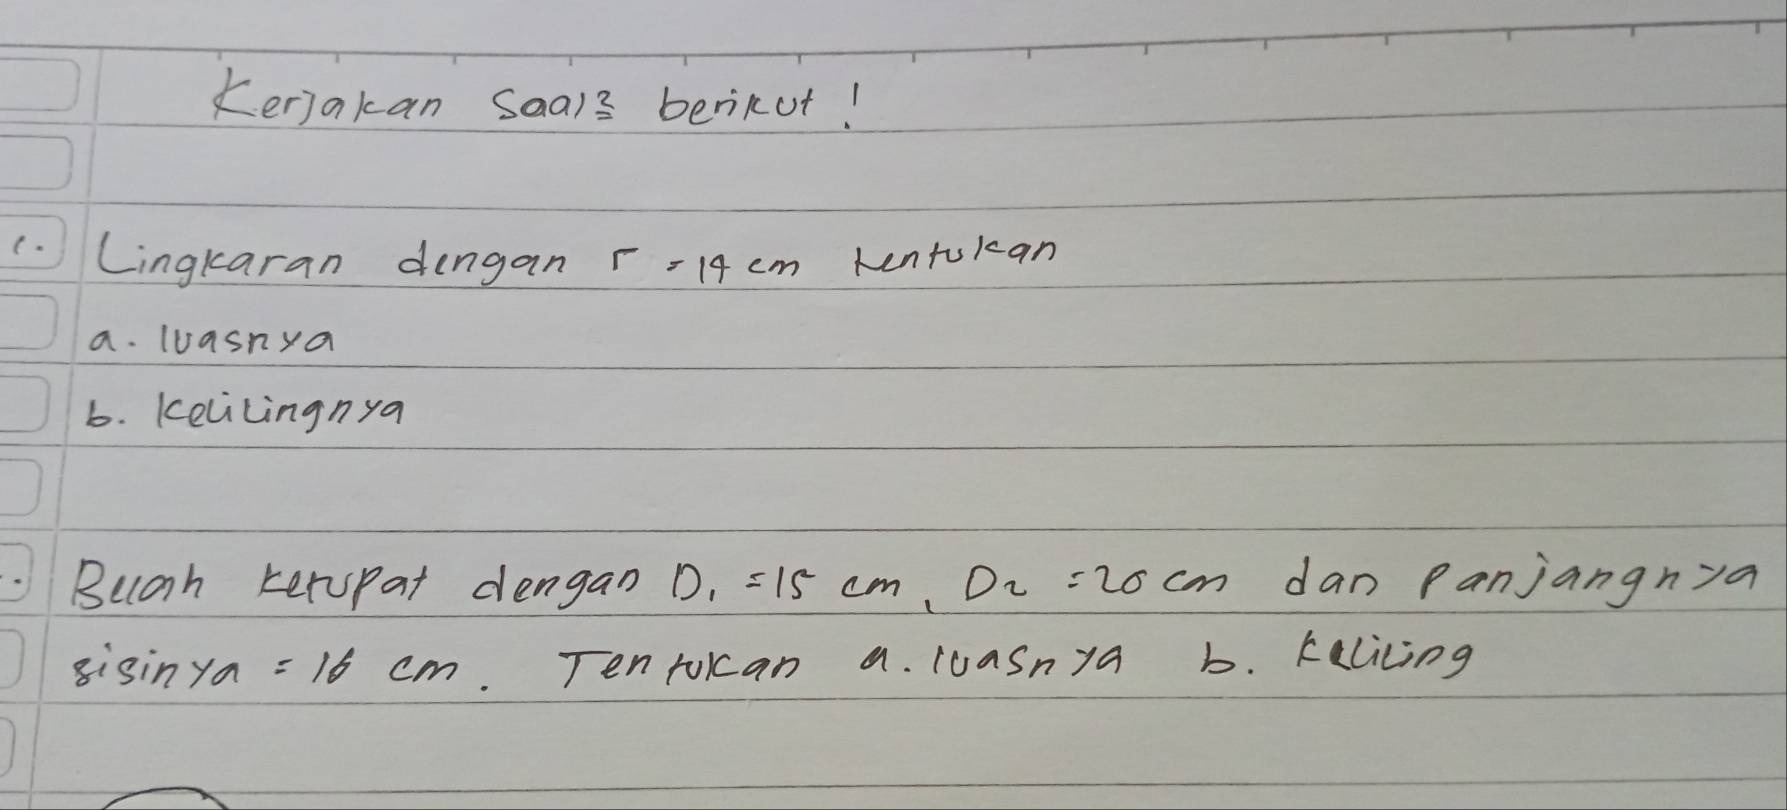 Kerjakan Saal2 berikut!
1. Lingkaran dengan r = 14 cm tentukan
a. luasnya
b. Kelilingnya
Buah ketupat dengan D1 = 15 cm, D2 = 20 cm dan Panjangnya
sisinya = 16 cm. Tentukan a. luasnya b. Keliling